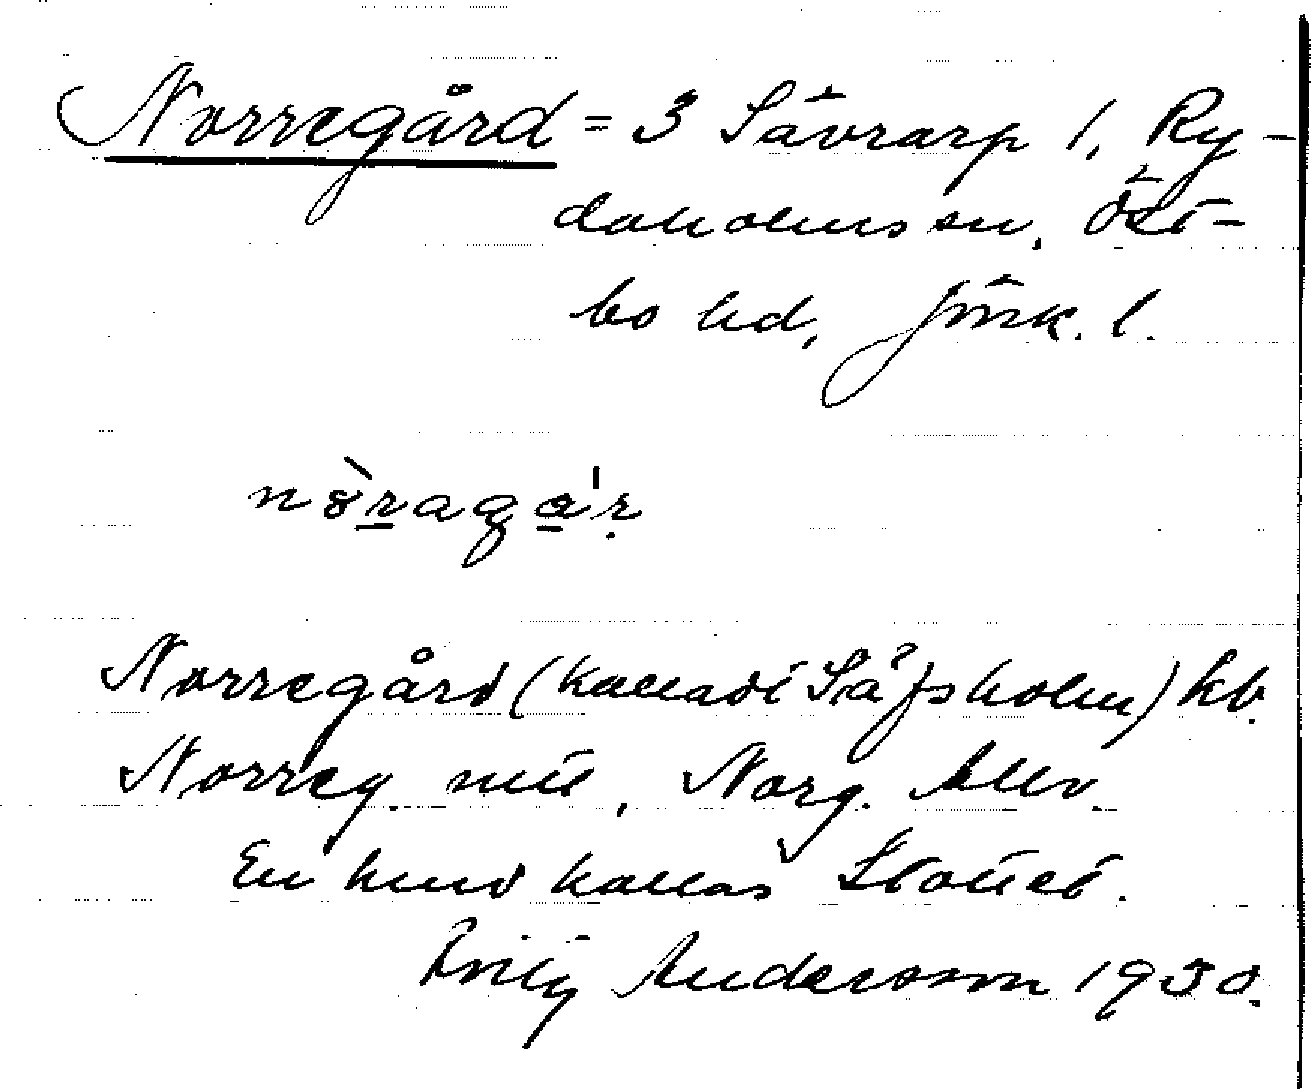 Norregård = 3 Sävrarp 1, Ry-
daholms sn, Öst-
bo hd, Jönk. l.
nòragá'r
Norregård (kalladt Säfsholm) kb.
Norreg. mtl, Norg. Allv.
En hmd kallas Slottet.
Andersson 1930.